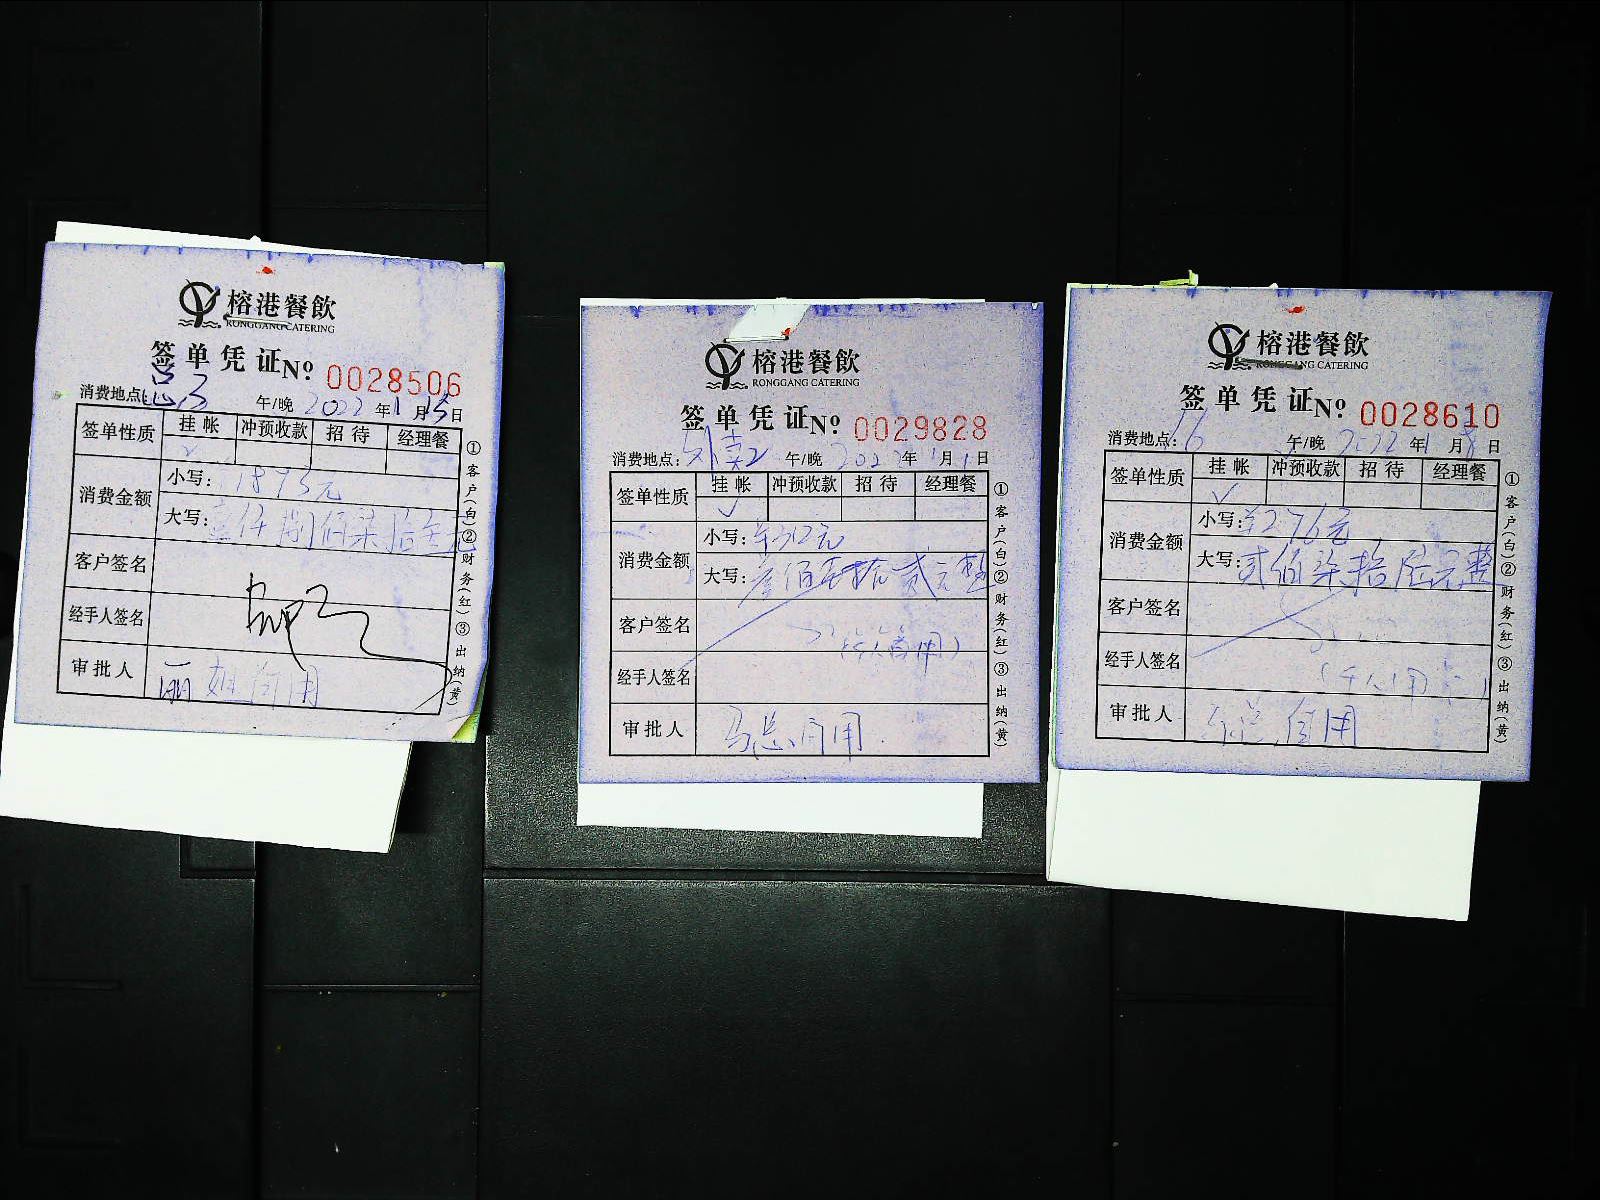 榕港餐飲
RONGGANG CATERING
签单凭证 No: 0028506
消费地点: 午/晚 2022年1月15日
签单性质 挂帐 冲预收款 招待 经理餐
消费金额
小写: 1873元
大写: 壹仟捌佰柒拾叁元
客户签名
经手人签名
审批人
①客户(白)②财务(红)③出纳(黄)
榕港餐飲
RONGGANG CATERING
签单凭证 No: 0029828
消费地点: 外卖2 午/晚 2022年1月1日
签单性质 挂帐 冲预收款 招待 经理餐
✓
消费金额
小写: ¥312元
大写: 叁佰壹拾贰元整
客户签名
经手人签名
审批人 马总
①客户(白)②财务(红)③出纳(黄)
榕港餐飲
RONGGANG CATERING
签单凭证 No: 0028610
消费地点: 16 午/晚 2022年1月8日
签单性质 挂帐 冲预收款 招待 经理餐
✓
消费金额
小写: ¥276元
大写: 贰佰柒拾陆元整
客户签名
经手人签名
审批人
①客户(白)②财务(红)③出纳(黄)